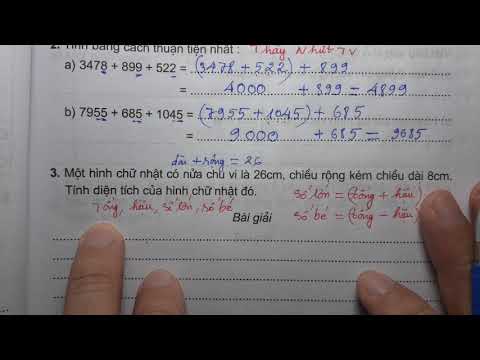 2. Tính bằng cách thuận tiện nhất : Thầy Nhứt TV
a) 3478 + 899 + 522 = (3478 + 522) + 899
= 4000 + 899 = 4899
b) 7955 + 685 + 1045 = (7955 + 1045) + 685
= 9000 + 685 = 9685
dài + rộng = 26
3. Một hình chữ nhật có nửa chu vi là 26cm, chiều rộng kém chiều dài 8cm.
Tính diện tích của hình chữ nhật đó. số lớn = (tổng + hiệu)
Tổng, hiệu, số lớn, số bé
Bài giải số bé = (tổng - hiệu)